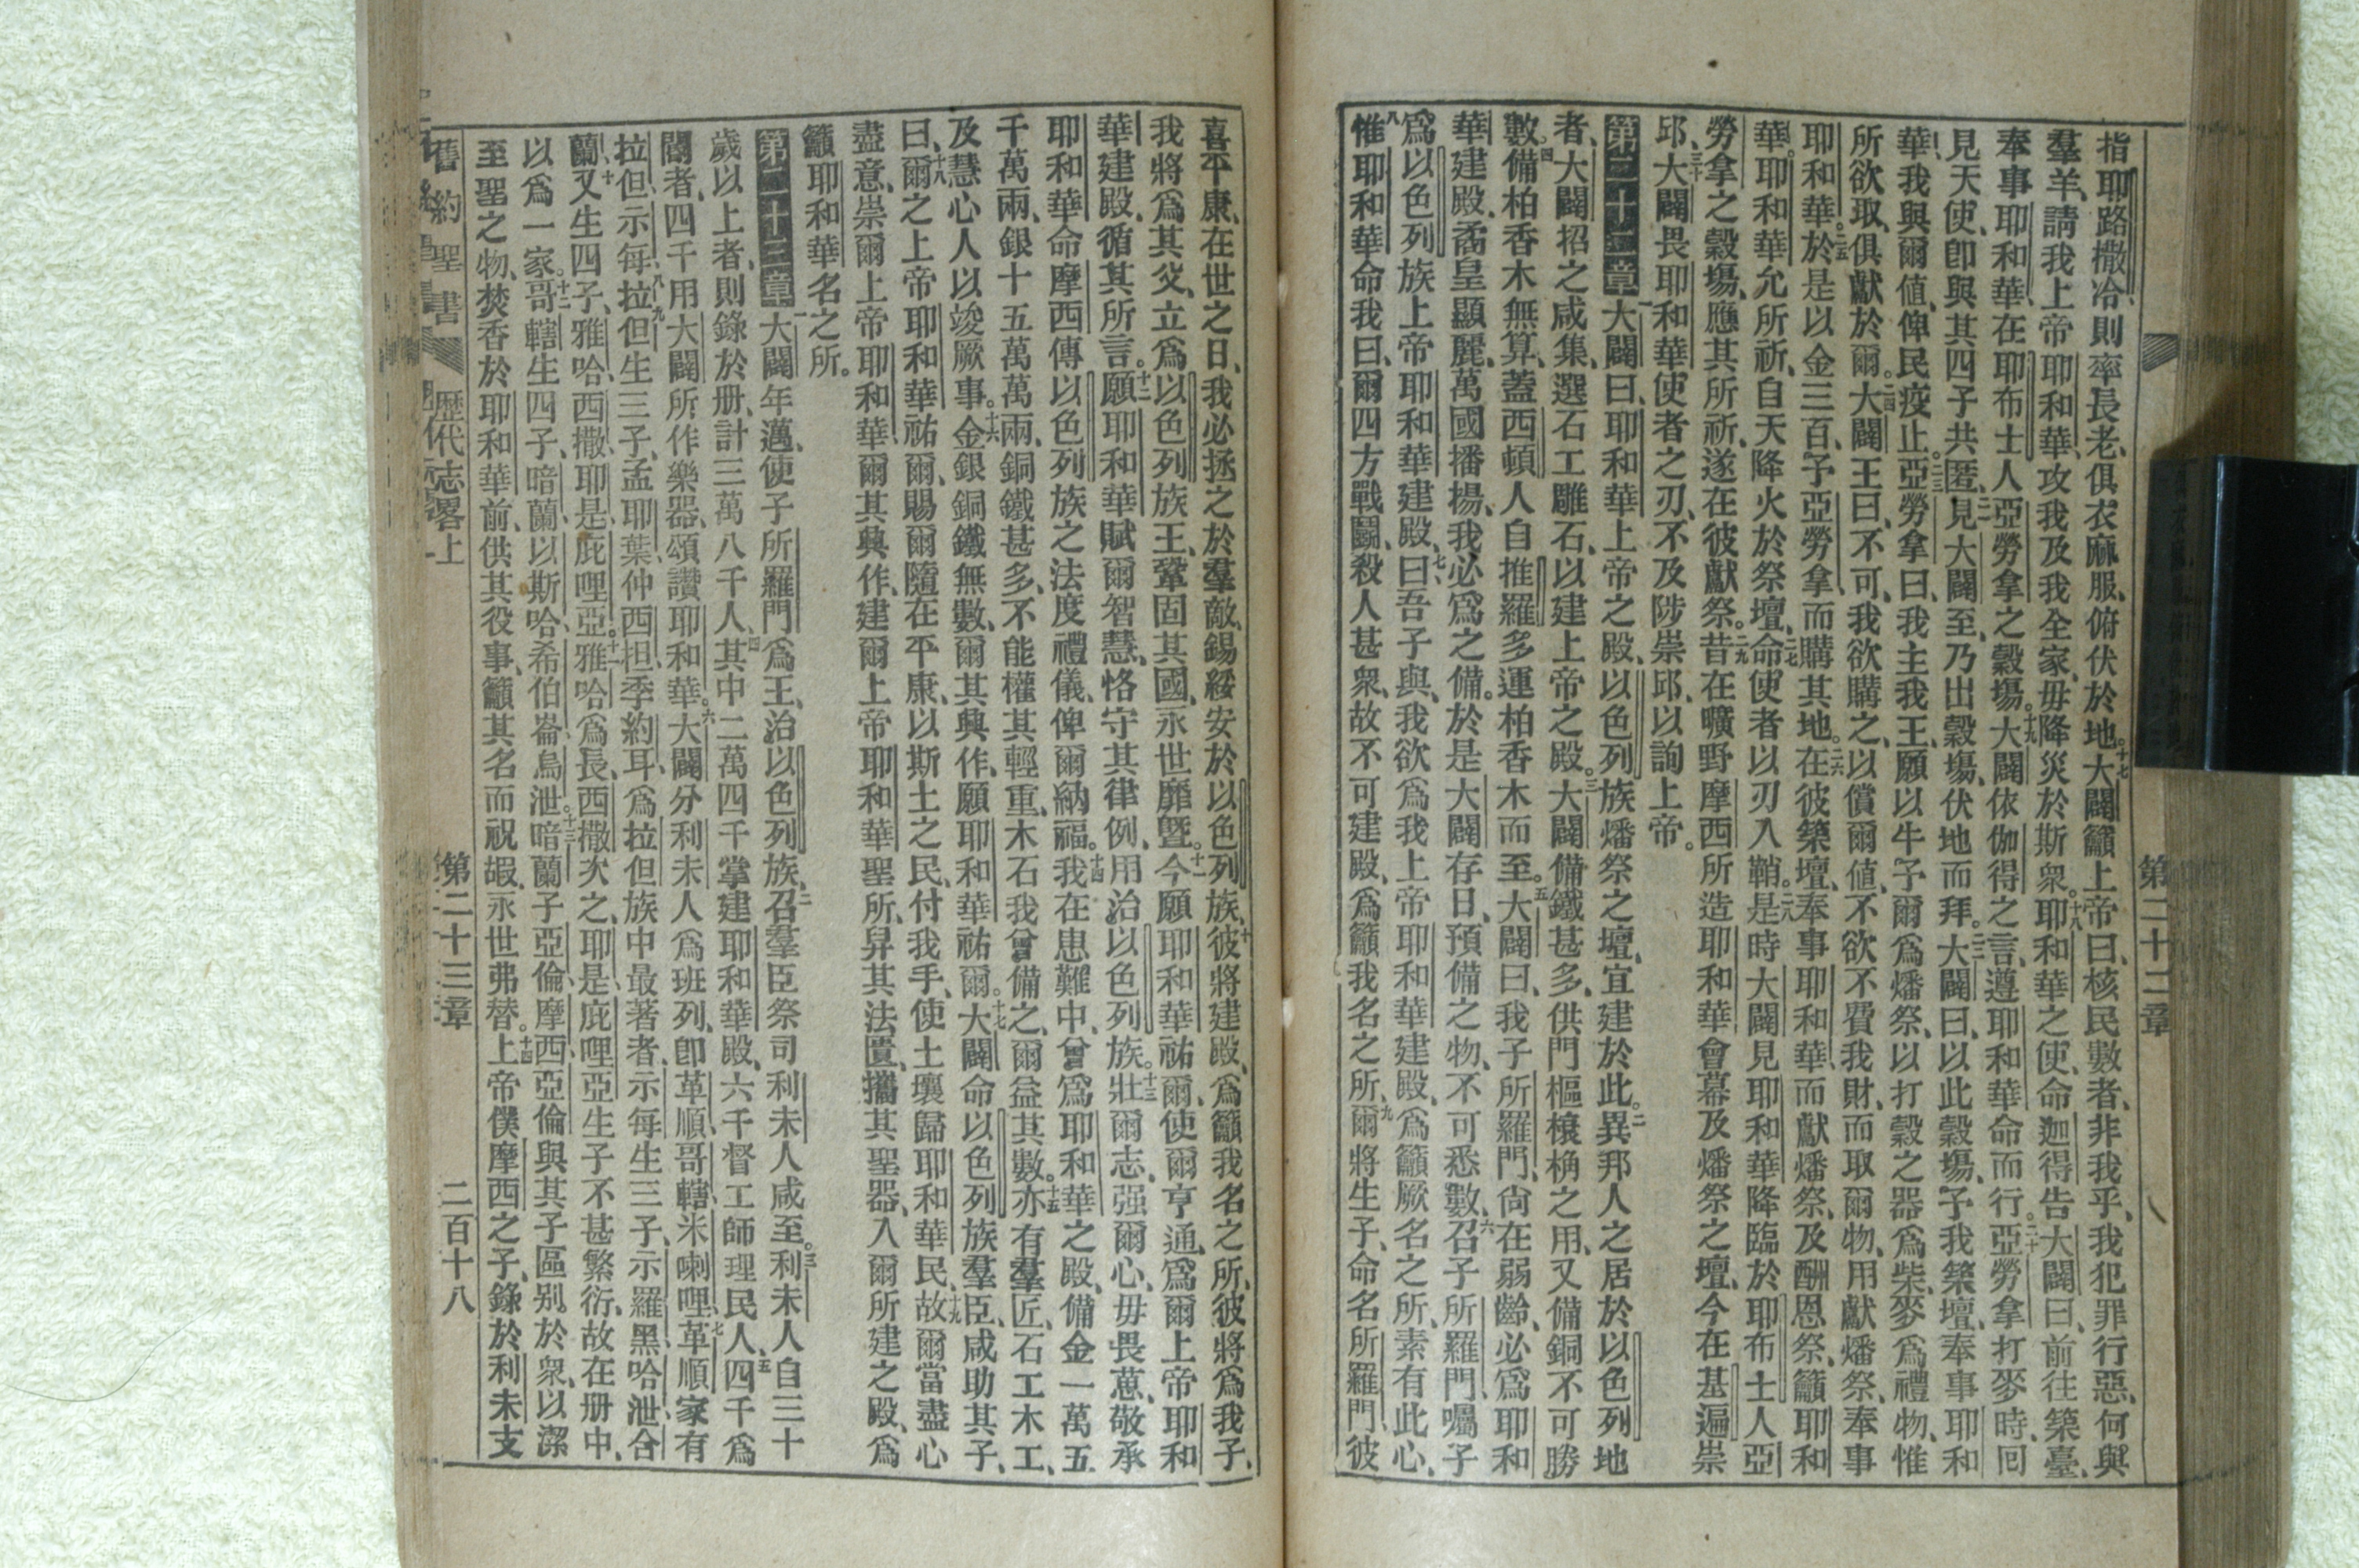 第二十二章
指耶路撒冷、則率長老、俱衣麻服、俯伏於地。十七大闢籲上帝曰、核民數者、非我乎、我犯罪行惡、何與
羣羊、請我上帝耶和華、攻我及我全家、毋降災於斯衆。十八耶和華之使、命迦得告大闢曰、前往築臺、
奉事耶和華、在耶布士人亞勞拿之穀場。十九大闢依伽得之言、遵耶和華命而行。二十亞勞拿打麥時、回
見天使、卽與其四子共匿、二一見大闢至、乃出穀場、伏地而拜。二二大闢曰、以此穀場、予我築壇、奉事耶和
華、我與爾值、俾民疫止。二三亞勞拿曰、我主我王、願以牛予爾爲燔祭、以打穀之器爲柴、麥爲禮物、惟
所欲取、俱獻於爾。二四大闢王曰、不可、我欲購之、以償爾值、不欲不費我財、而取爾物、用獻燔祭、奉事
耶和華。二五於是以金三百、予亞勞拿、而購其地。二六在彼築壇、奉事耶和華、而獻燔祭、及酬恩祭、籲耶和
華。耶和華允所祈、自天降火於祭壇、二七命使者以刃入鞘。二八是時大闢見耶和華降臨於耶布士人亞
勞拿之穀場、應其所祈、遂在彼獻祭。二九昔在曠野摩西所造耶和華會幕、及燔祭之壇、今在基遍崇
邱、三十大闢畏耶和華使者之刃、不及陟崇邱、以詢上帝。
第二十二章一大闢曰、耶和華上帝之殿、以色列族燔祭之壇、宜建於此。二異邦人之居於以色列地
者、大闢招之咸集、選石工雕石、以建上帝之殿。三大闢備鐵甚多、供門樞榱桷之用、又備銅不可勝
數。四備柏香木無算、蓋西頓人自推羅多運柏香木而至。五大闢曰、我子所羅門、尙在弱齡、必爲耶和
華建殿、矞皇顯麗、萬國播揚、我必爲之備。於是大闢存日、預備之物、不可悉數、六召子所羅門、囑子
爲以色列族上帝耶和華建殿、七曰、吾子與、我欲爲我上帝耶和華建殿、爲籲厥名之所、素有此心、
八惟耶和華命我曰、爾四方戰鬬、殺人甚衆、故不可建殿、爲籲我名之所、九爾將生子、命名所羅門、彼
喜平康、在世之日、我必拯之於羣敵、錫綏安於以色列族、十彼將建殿、爲籲我名之所、彼將爲我子、
我將爲其父、立爲以色列族王、鞏固其國、永世靡曁。十一今願耶和華祐爾、使爾亨通、爲爾上帝耶和
華建殿、循其所言。十二願耶和華賦爾智慧、恪守其律例、用治以色列族。十三壯爾志、强爾心、毋畏葸、敬承
耶和華命摩西傳以色列族之法度禮儀、俾爾納福。十四我在患難中、曾爲耶和華之殿、備金一萬五
千萬兩、銀十五萬萬兩、銅鐵甚多、不能權其輕重、木石我曾備之、爾益其數。十五亦有羣匠、石工木工、
及慧心人以竣厥事。十六金銀銅鐵無數、爾其興作、願耶和華祐爾。十七大闢命以色列族羣臣、咸助其子、
曰、十八爾之上帝耶和華祐爾、賜爾隨在平康、以斯土之民、付我手、使土壤歸耶和華民、十九故爾當盡心
盡意、崇爾上帝耶和華、爾其興作、建爾上帝耶和華聖所、舁其法匱、攜其聖器、入爾所建之殿、爲
籲耶和華名之所。
第二十三章一大闢年邁、使子所羅門爲王、治以色列族、二召羣臣祭司利未人咸至。三利未人自三十
歲以上者、則錄於册、計三萬八千人、四其中二萬四千掌建耶和華殿、六千督工師理民人、五四千爲
閽者、四千用大闢所作樂器、頌讚耶和華。六大闢分利未人爲班列、卽革順哥轄米喇哩、七革順家有
拉但示每、八九拉但生三子、孟耶葉仲西担季約耳、爲拉但族中最著者、示每生三子、示羅黑哈泄合
蘭、十又生四子、雅哈西撒耶是庇哩亞、十一雅哈爲長、西撒次之、耶是庇哩亞生子不甚繁衍、故在册中、
以爲一家。十二哥轄生四子、暗蘭以斯哈希伯崙烏泄。十三暗蘭子亞倫摩西、亞倫與其子區别於衆、以潔
至聖之物、焚香於耶和華前、供其役事、籲其名而祝嘏、永世弗替。十四上帝僕摩西之子、錄於利未支
舊約聖書 歷代志畧上 第二十三章 二百十八